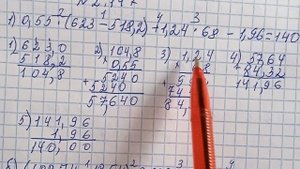 1) 0,55 · (623 - 518,2) + 1,24 · 68 - 1,96 = 140
1) 623,0
518,2
104,8
2) 104,8
0,55
5240
5240
57,640
3) 1,24
84,
4) 57,64
84,32
141,96
5) 141,96
1,96
140,00